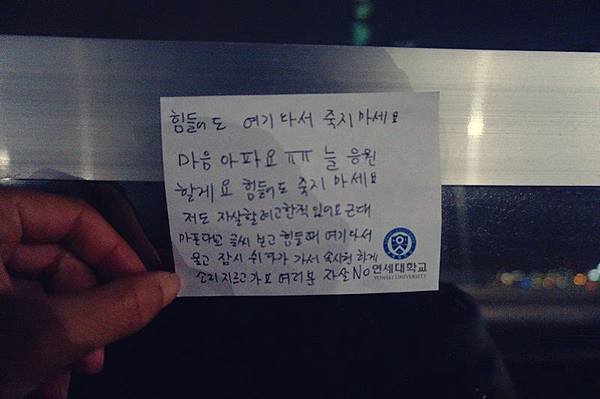 힘들어도 여기 다서 죽지 마세요
마음 아파요 ㅠㅠ 늘 응원
할게요 힘들어도 죽지 마세요
저도 자살할려고 한적 있어요 근데
글씨 보고 힘들때 여기다서
울고 잠시 쉬다가 가서 속시원하게
소리지르고가요 여러분 자살 No
연세대학교
YONSEI UNIVERSITY